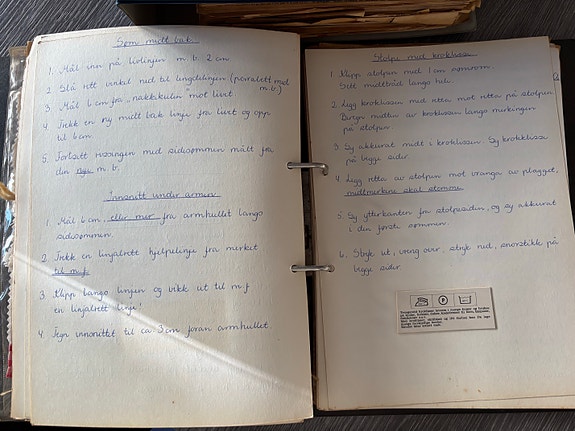 Søm midt bak.
1. Mål inn på livlinjen m.b. 2 cm
2. Slå rett vinkel ned til lengdelinjen (parallelt med m.b.)
3. Mål 6 cm fra „nakkekulen" mot livet.
4. Trekk en ny midt bak linje fra livet og opp
til 6 cm.
5. Fortsett rissingen med sidesømmen målt fra
din ny m.b.
Innsnitt under armen
1. Mål 6 cm, eller mer fra armhullet langs
sidesømmen.
2. Trekk en linjalrett hjelpelinje fra merket
til m.f.
3. Klipp langs linjen og vikk ut til m.f
en linjalrett linje!
4. Tegn innsnittet til ca. 3 cm foran armhullet.
Stolpe med kroklisse
1. Klipp stolpen med 1 cm sømrom.
Sett midttråd langs hele.
2. Legg kroklissen med retta mot retta på stolpen.
midten av kroklissen langs merkingen
på stolpen.
3. Sy akkurat midt i kroklissen. Sy kroklisse
på begge sider.
4. Legg retta av stolpen mot vranga av plagget,
midtmerkene skal stemme.
5. Sy ytterkanten fra stolpesiden, og sy akkurat
i den første sømmen.
6. Stryk ut, vreng over, stryk ned, smørstikk på
begge sider.
P